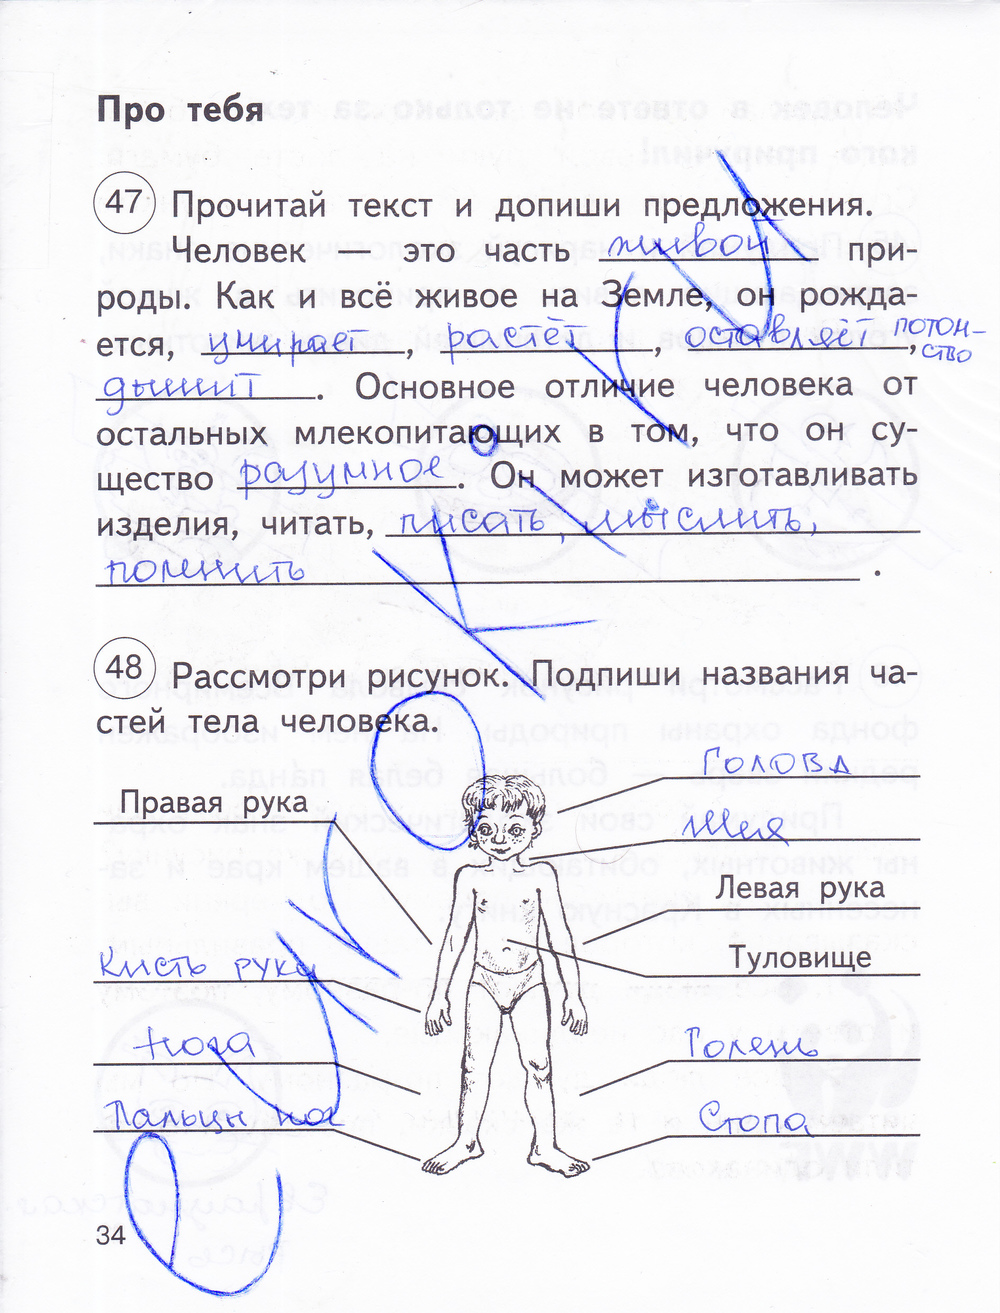 Про тебя
47 Прочитай текст и допиши предложения.
Человек — это часть живой при-
роды. Как и всё живое на Земле, он рожда-
ется, умирает, растёт, оставляет потом-
ство,
дышит. Основное отличие человека от
остальных млекопитающих в том, что он су-
щество разумное. Он может изготавливать
изделия, читать, писать, мыслить,
помнить.
48 Рассмотри рисунок. Подпиши названия ча-
стей тела человека.
Голова
Правая рука
Шея
Левая рука
Туловище
Кисть руки
Нога
Голень
Пальцы ног
Стопа
34